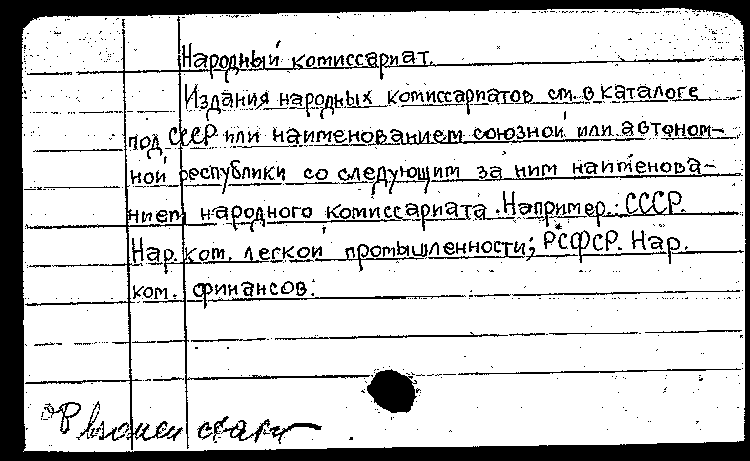 Народный комиссариат.
Издания народных комиссариатов см. в каталоге
под СССР или наименованием союзной или автоном-
ной республики со следующим за ним наименова-
нием народного комиссариата. Например: СССР.
Нар. ком. легкой промышленности; РСФСР. Нар.
ком. финансов.
взамен стар